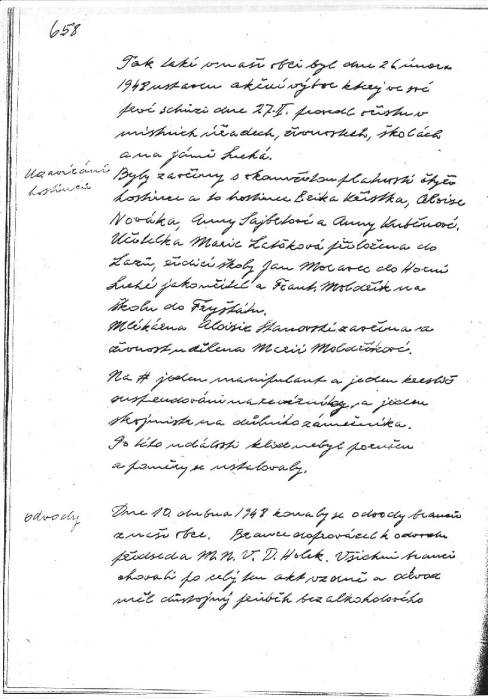 658
Tak také v naší obci byl dne 26 února
1948 ustaven akční výbor který ve své
prvé schůzi dne 27.II. provedl očistu v
místních úřadech, živnostech, školách
a na jámě Suchá.
Uzavírání
hostinců
Byly zavřeny s okamžitou platností čtyři
hostince a to hostinec Erika Křístka, Aloise
Nováka, Anny Sajbotové a Anny Kubínové.
Učitelka Marie Letáková přeložena do
Lazů, řídící školy Jan Mocarec do Horní
Suché jako učitel a Frant. Moldřík na
školu do Fryštátu.
Mlékárna Aloisie Stanovské zavřena a
živnost udělena Marii Moldříkové.
Na # jeden manipulant a jeden kreslič
suspendováni na zavírníky, a jeden
strojmistr na důlního zámečníka.
Po této události klid nebyl porušen
a poměry se ustalovaly.
odvody
Dne 10 dubna 1948 konaly se odvody branců
z naší obce. Brance doprovázel k odvodu
předseda M.N.V. D. Holek. Všichni branci
chovali po celý ten akt vzorně a odvod
měl důstojný průběh bez alkoholového